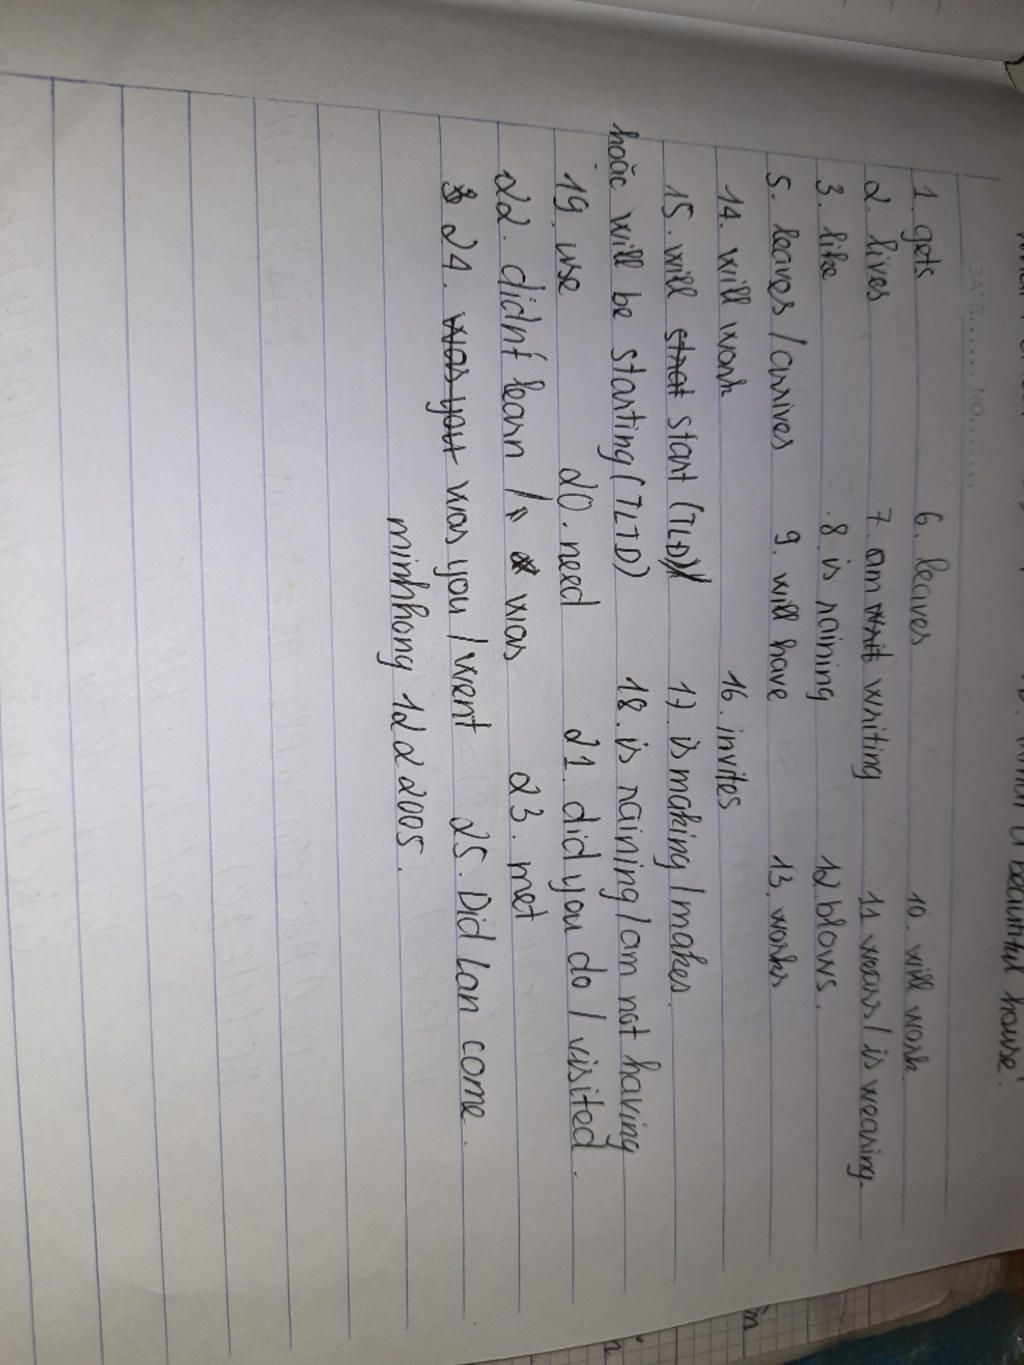 DATE..... NO.......
1. gets 6. leaves 10. will work
2. lives 7. am writing 11 wears / is wearing.
3. like 8. is raining 12 blows.
5. leaves / arrives 9. will have 13. works
14. will work 16. invites
15. will start (TLD) 17. is making / makes.
hoặc will be starting (TLTD) 18. is raining / am not having
19. use 20. need 21. did you do / visited.
22. didn't learn / was 23. met
24. was you / went 25. Did Lan come.
minhhong 1222005.
beautiful house.